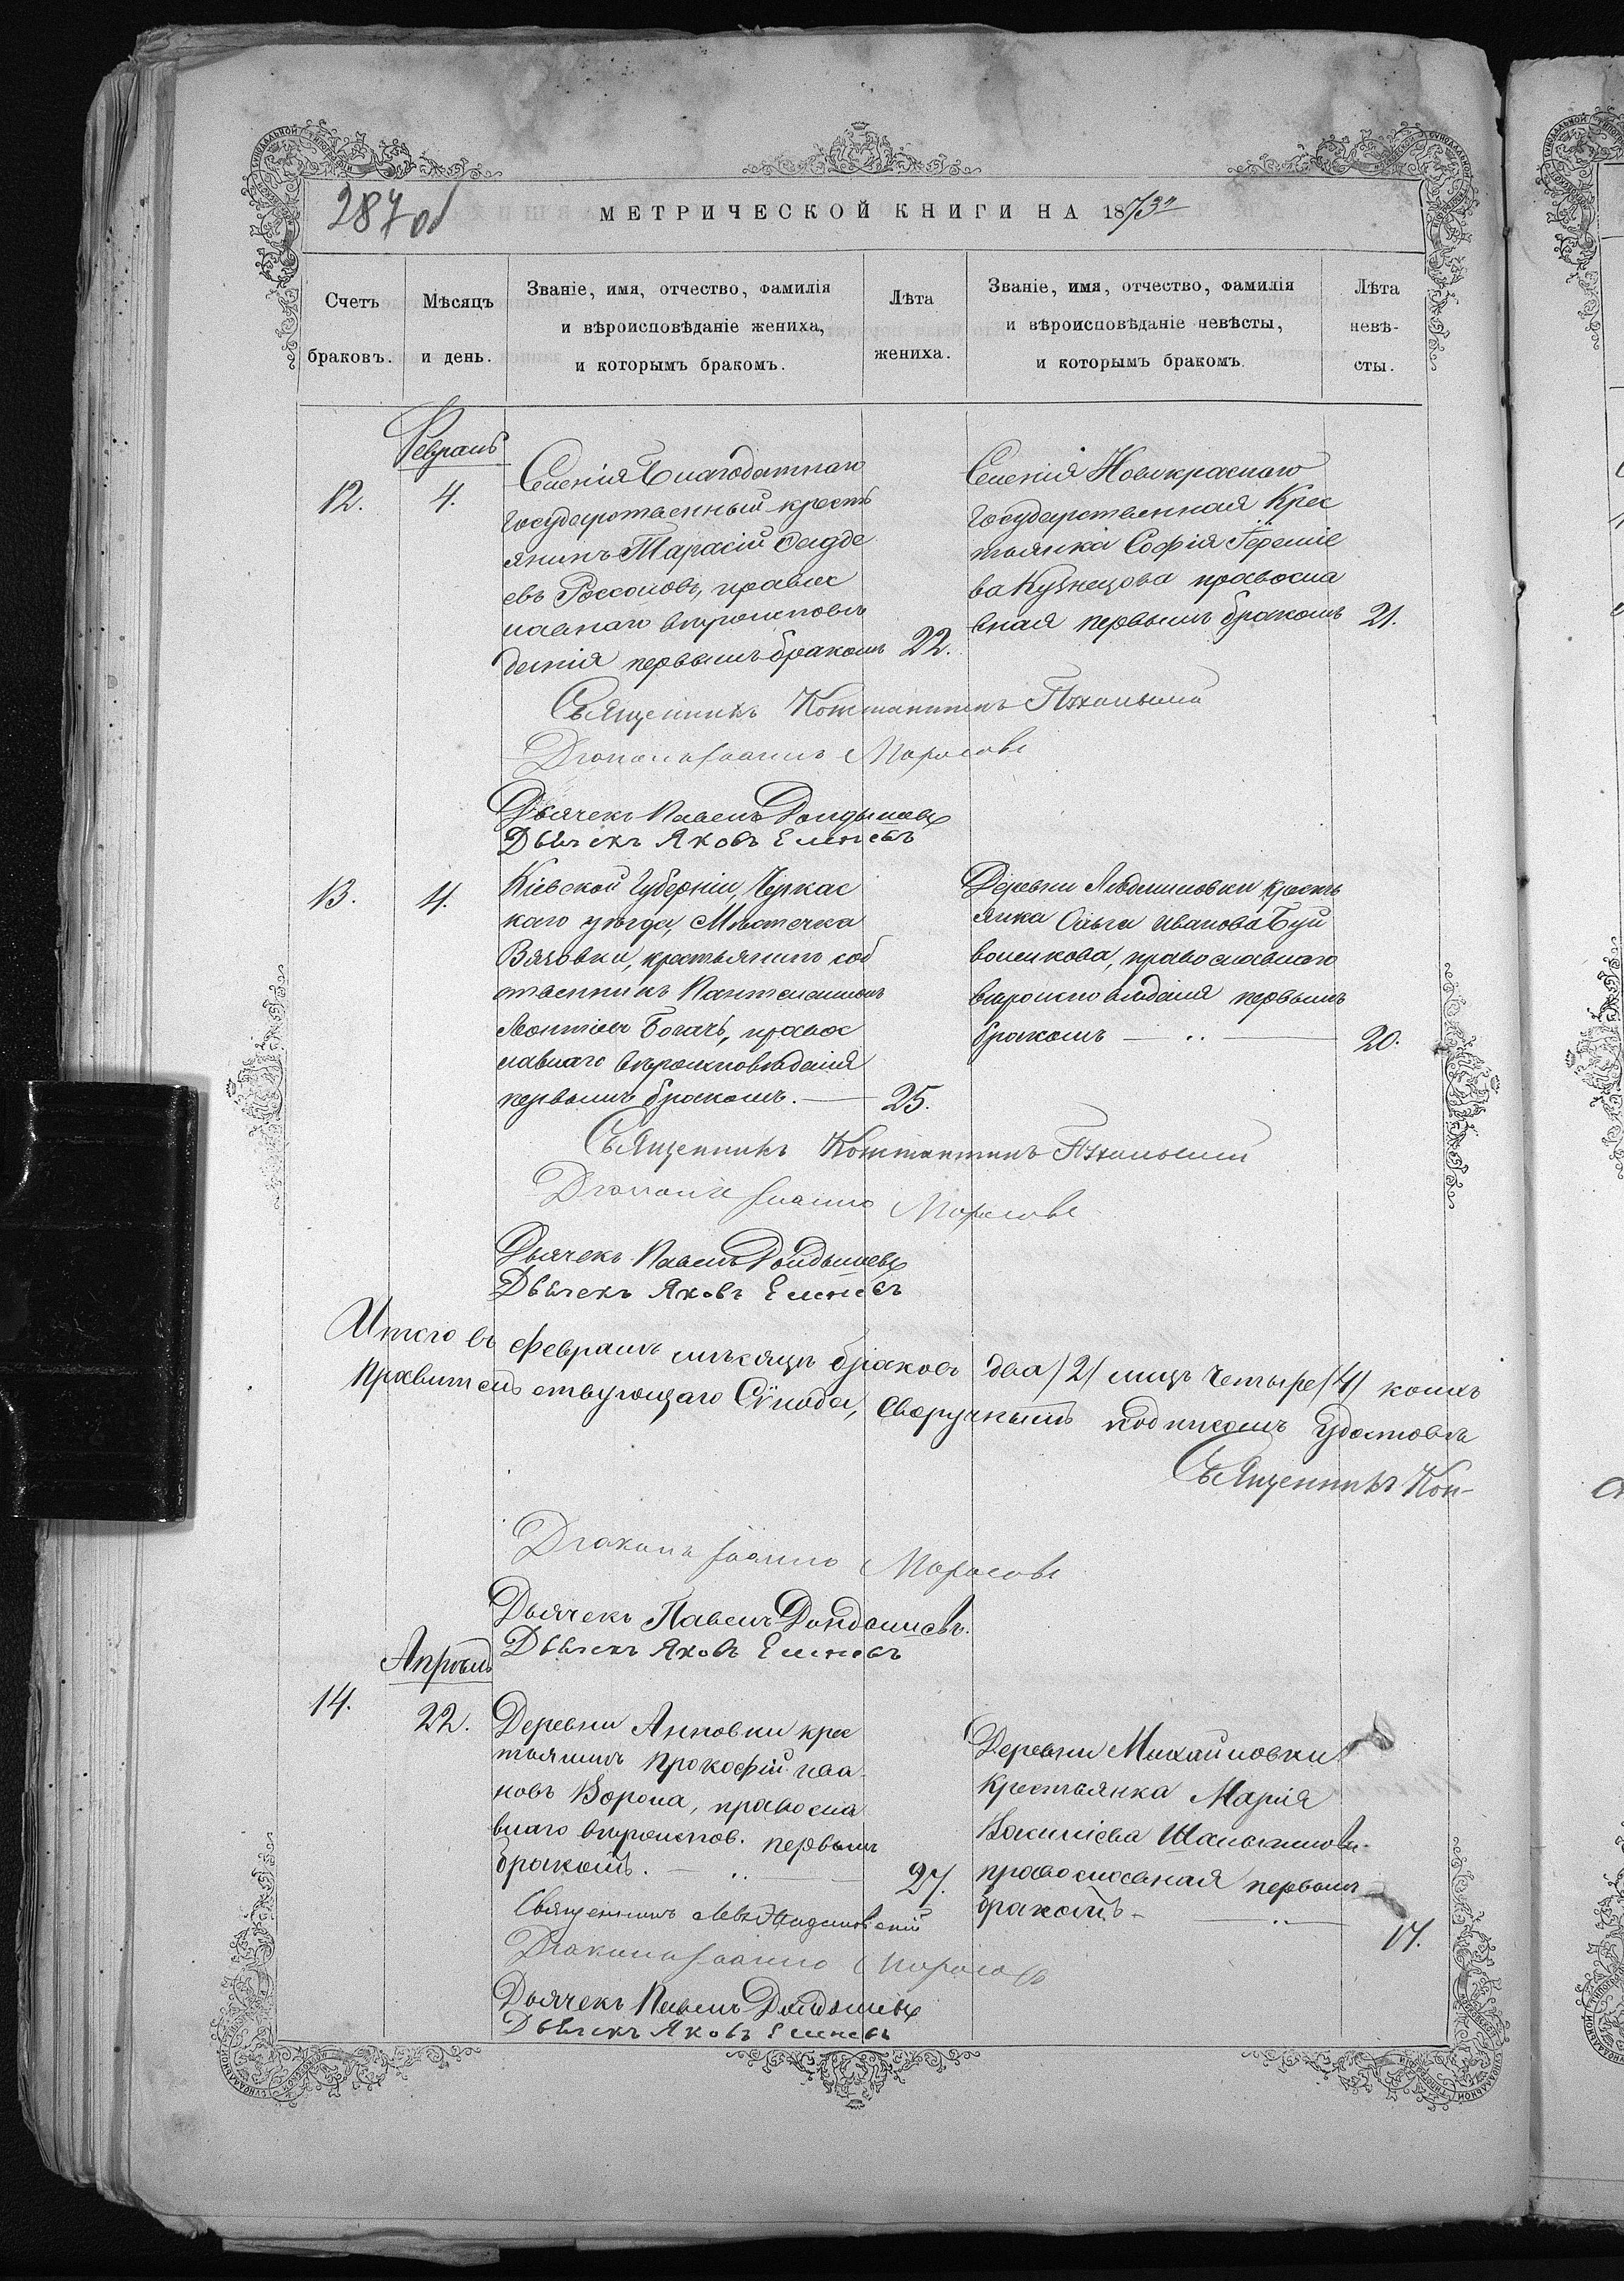 287 об
МЕТРИЧЕСКОЙ КНИГИ НА 1873й
Счетъ браковъ.
Мѣсяцъ и день.
Званіе, имя, отчество, фамилія
и вѣроисповѣданіе жениха,
и которымъ бракомъ.
Лѣта жениха.
Званіе, имя, отчество, фамилія
и вѣроисповѣданіе невѣсты,
и которымъ бракомъ.
Лѣта невѣ-
сты.
Февраль
12.
4.
Селенія Благодатнаго
государственный крестъ
янинъ Тарасій Фадде
евъ Россоловъ, правос
лавнаго вѣроисповѣ
данія первымъ бракомъ
22.
Селенія Новокраснаго
государственная Крес
тьянка Софія Іереміе
ва Кузнецова правосла
вная первымъ бракомъ
21.
Священникъ Константинъ
Діаконъ Іоаннъ
Дьячекъ Павелъ
Дьячекъ Яковъ
13.
4.
Кіевской Губерніи, Черкас
каго уѣзда, Мѣстечка
Вязовки, крестьянинъ соб
ственникъ Пантелеимонъ
Леонтіевъ Богачъ, правос
лавнаго вѣроисповѣданія
первымъ бракомъ.
25.
Деревни Людмиловки крестъ
янка Ольга Иванова Буй
воленкова, православнаго
вѣроисповѣданія первымъ
бракомъ
20.
Священникъ Константинъ
Діаконъ Іоаннъ
Дьячекъ Павелъ
Дьячекъ Яковъ
Итого въ февралѣ мѣсяцѣ браковъ два /2/ лицъ четыре /4/ коихъ
Правительствующаго Сѵнода, своручнымъ подписомъ удостовѣ
Священникъ Кон-
Діаконъ Іоаннъ
Дьячекъ Павелъ
Дьячекъ Яковъ
Апрѣль
14.
22.
Деревни Анновки крес
тьянинъ Прокофій Ива
новъ Ворона, правосла
внаго вѣроиспов. первымъ
бракомъ.
27.
Деревни Михайловки
Крестьянка Марія
Василіева
православная первымъ
бракомъ
17.
Священникъ Левъ
Діаконъ Іоаннъ
Дьячекъ Павелъ
Дьячекъ Яковъ